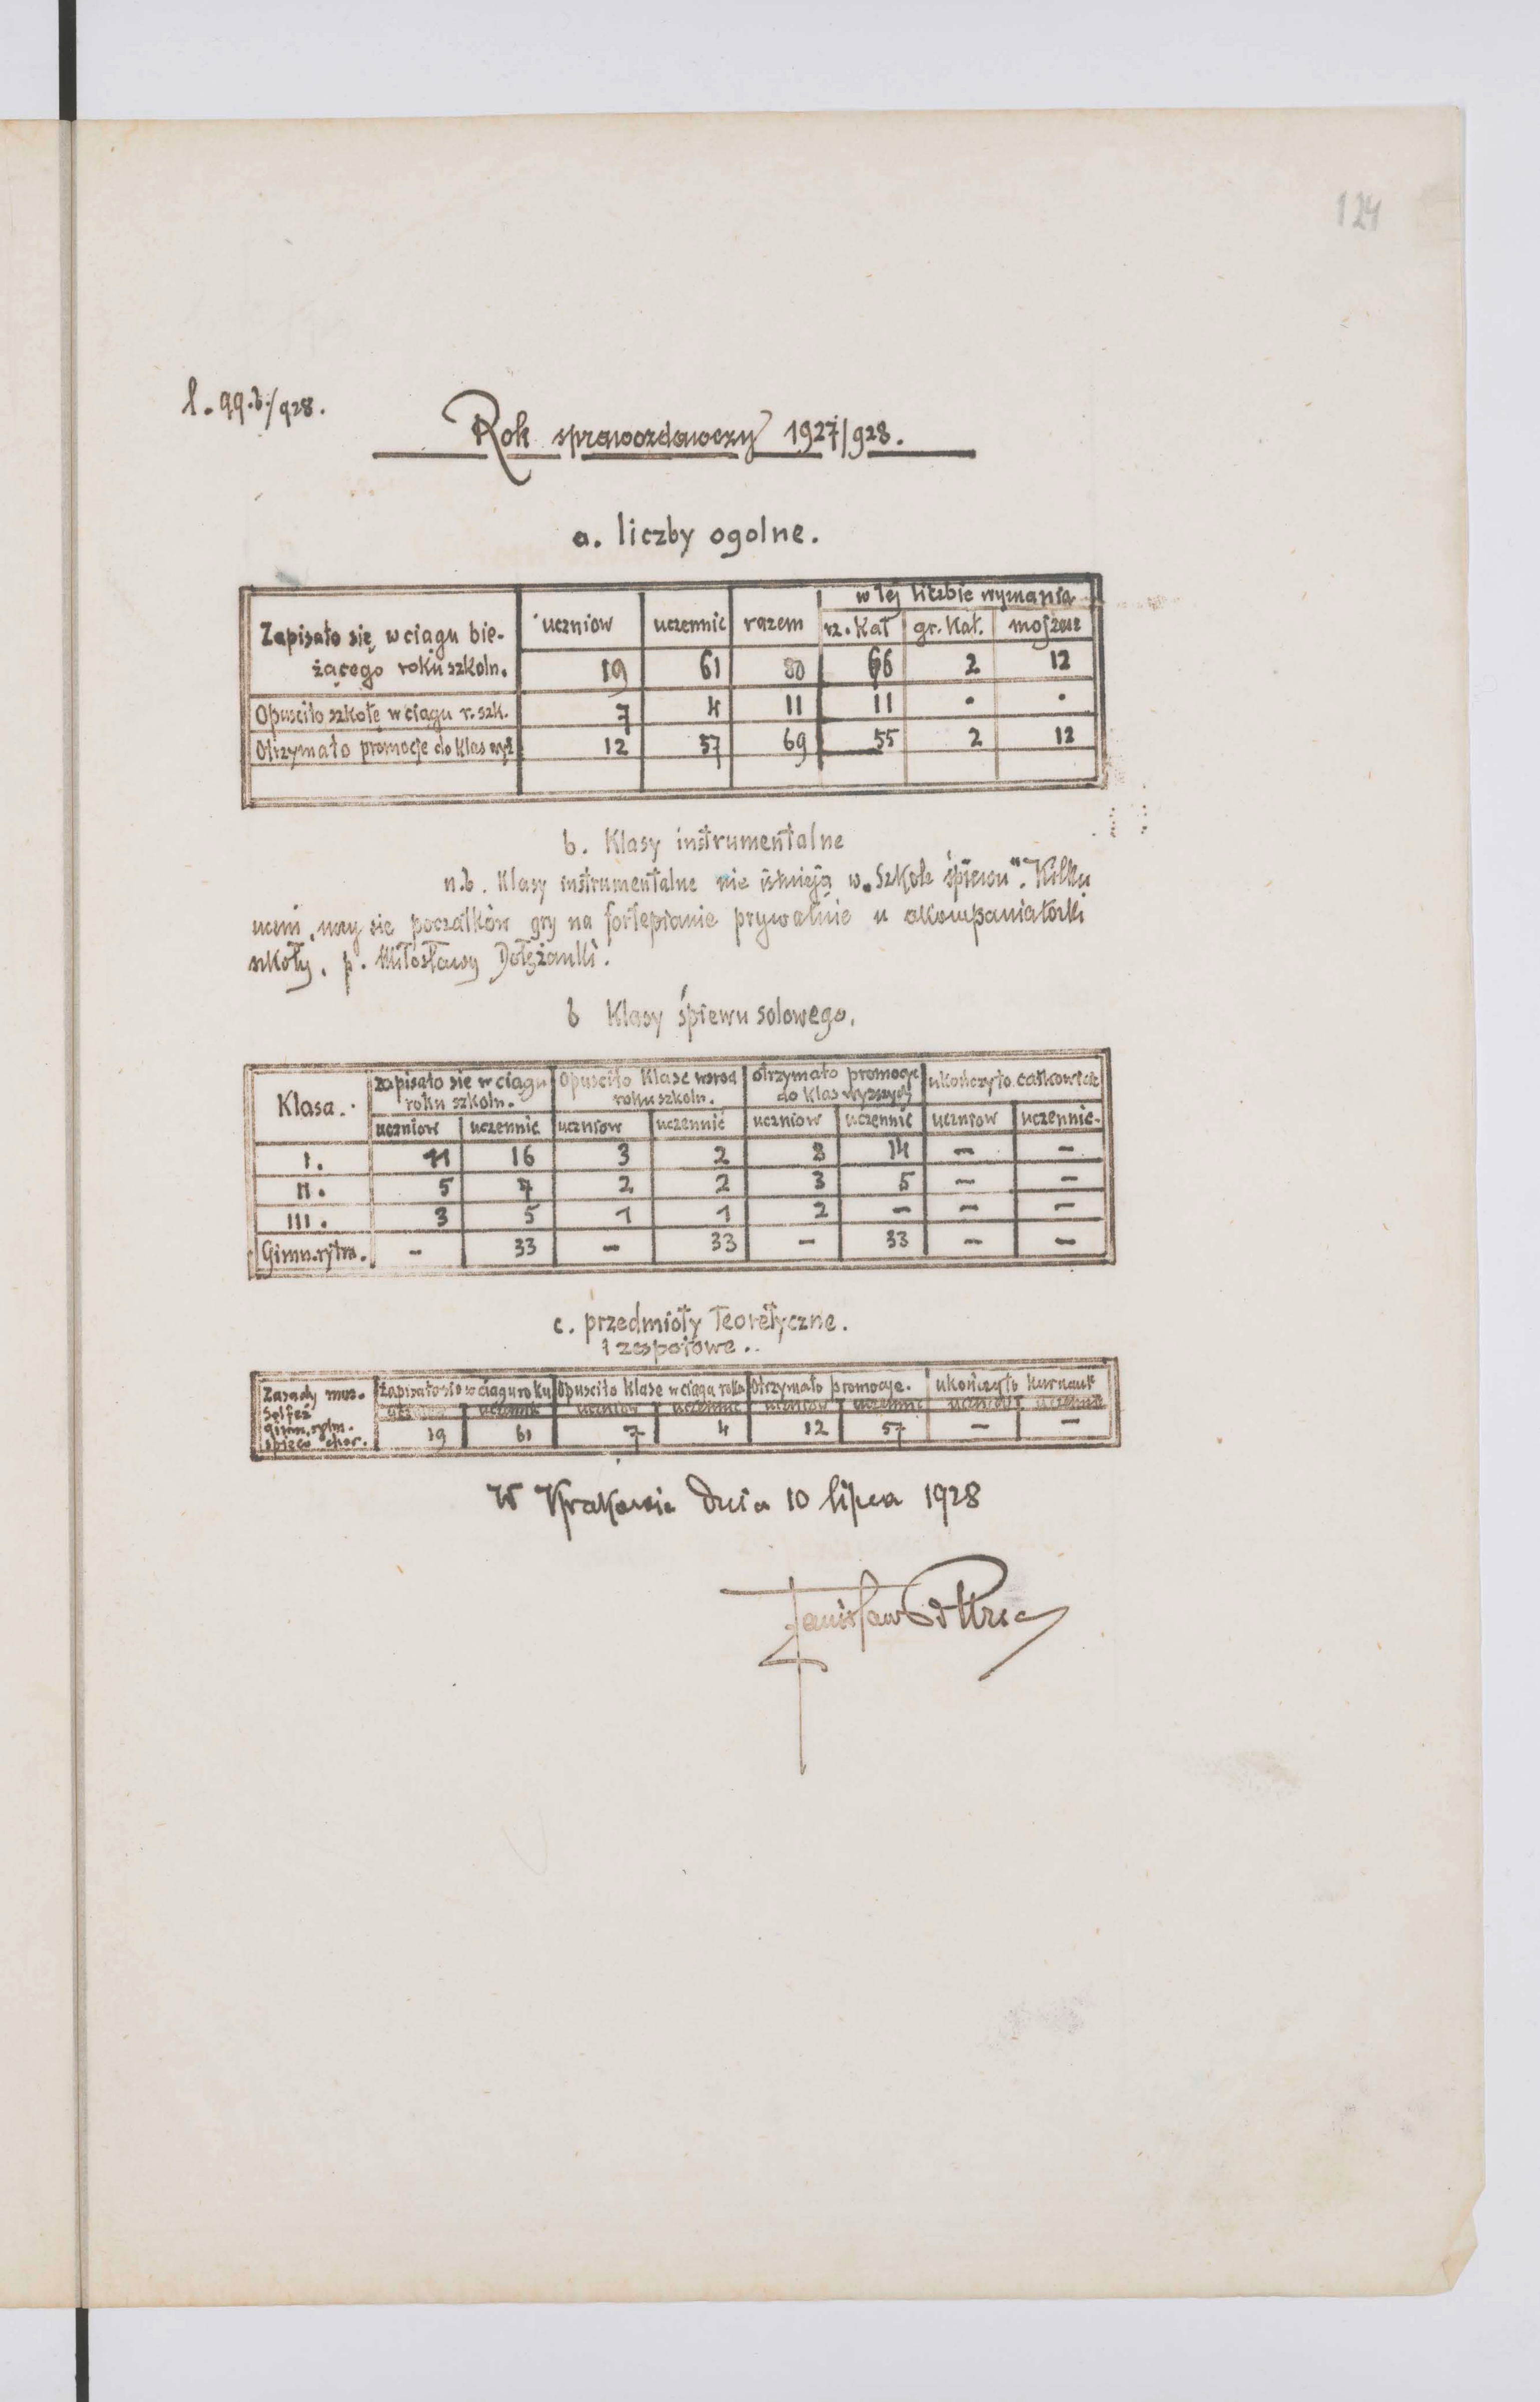 124
l. 99.b./928.
Rok sprawozdawczy 1927/928.
a. liczby ogolne.
w tej liczbie wyznania
Zapisało się w ciągu bie- uczniow uczennic razem rz. Kat gr. Kat. mojżesz
żącego roku szkoln. 19 61 80 66 2 12
Opuściło szkołe w ciągu r. szk. 7 4 11 11 . .
Otrzymało promocje do klas wyż 12 57 69 55 2 12
b. Klasy instrumentalne
n.b. Klasy instrumentalne nie istnieją w „Szkole śpiewu". Kilku
uczni uczy się początków gry na fortepianie prywatnie u akompaniatorki
szkoły, p. Miłosławy Dołżanki.
b Klasy śpiewu solowego.
Klasa. zapisało sie w ciągu roku szkoln. Opuściło Klase wsrod roku szkoln. otrzymało promocje do klas wyższych ukończyło całkowicie
uczniow uczennic uczniow uczennic uczniow uczennic uczniow uczennic.
I. 11 16 3 2 8 14 – –
II. 5 7 2 2 3 5 – –
III. 3 5 1 1 2 – – –
Gimn. rytm. – 33 – 33 – 33 – –
c. przedmioty teoretyczne.
i zespołowe..
Zasady muz. Zapisało sie w ciągu roku Opuściło klase w ciągu roku Otrzymało promocje. ukończyło kurs nauk
Solfeż uczniow uczennic uczniow uczennic uczniow uczennic uczniow uczennic
Gimn. rytm.
śpiew chor. 19 61 7 4 12 57 – –
W Krakowie dnia 10 lipca 1928
Stanisław